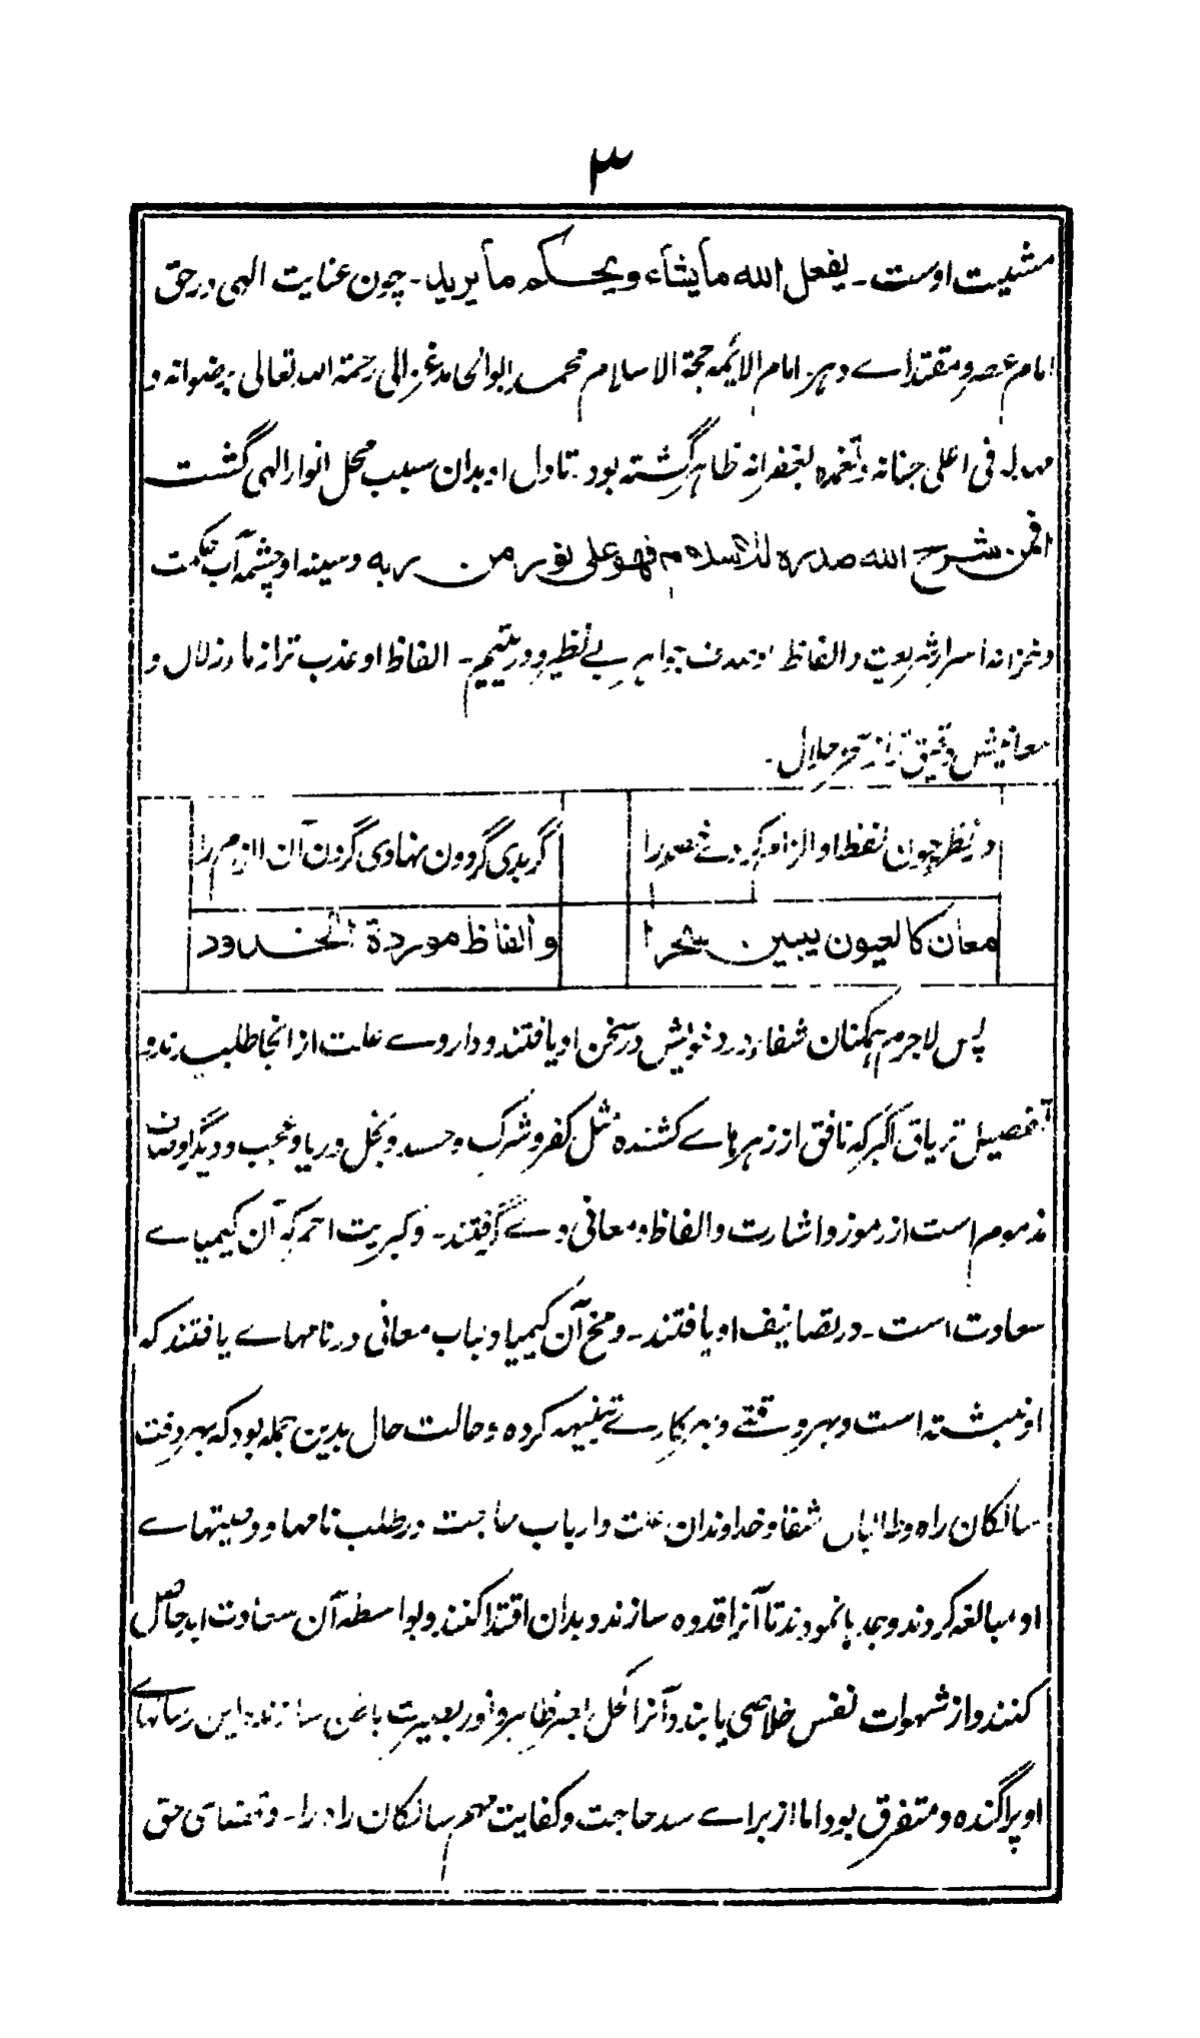 ۳
مشیت اوست ۔ یفعل الله ما یشاء و یحکم ما یرید ۔ چون عنایت الهی در حق
امام عصر و مقتداے دهر امام الایمه حجة الاسلام محمد ابوالحامد غزالی رحمة الله تعالی برضوانه و
فی اعلی جنانه و تغمده بغفرانه ظاهر گشته بود ۔ تا دل او بدان سبب محل انوار الهی گشت
افمن شرح الله صدره للاسلام فهو علی نور من ربه و سینه او چشمه آب حکمت
و خزانه اسرار شریعت و الفاظ او صدف جواهر بے نظیر و در یتیم ۔ الفاظ او عذب تر از ماء زلال و
معانیش دقیق تر از سحر حلال ۔
در نظر چون لفظ او الزام کردے خصم را
گر بدی گردون نهادی گردن آن الزام را
معان کالعیون یبین سحرا
و الفاظ موردة الخدود
پس لاجرم همکنان شفاء درد خویش در سخن او یافتند و داروے علت از انجا طلبیدند و
تحصیل تریاق اکبر که نافع از زهرهاے کشنده مثل کفر و شرک و حسد و بخل و ریا و عجب و دیگر اوصاف
مذموم است از رموز و اشارت و الفاظ و معانی وے گرفتند ۔ و کبریت احمر که آن کیمیاے
سعادت است ۔ در تصانیف او یافتند ۔ و مخ آن کیمیا و لباب معانی در نامهاے یافتند که
او نبشته است و بهر وقتے و بهر کارے تنبیه کرده و حالت حال بدین جمله بود که بهر وقت
سالکان راه و طالبان شفا و خداوندان علت و ارباب حاجت در طلب نامها و وصیتهاے
او مبالغه کردند و جدها نمودند تا آنرا قدوه سازند و بدان اقتدا کنند و بواسطه آن سعادت ابد حاصل
کنند و از شهوات نفس خلاصی یابند و آنرا کحل بصر ظاهر و نور بصیرت باطن سازند و این رسالهاے
او پراگنده و متفرق بود اما از براے سد حاجت و کفایت مهم سالکان راه را ۔ و قضاے حق